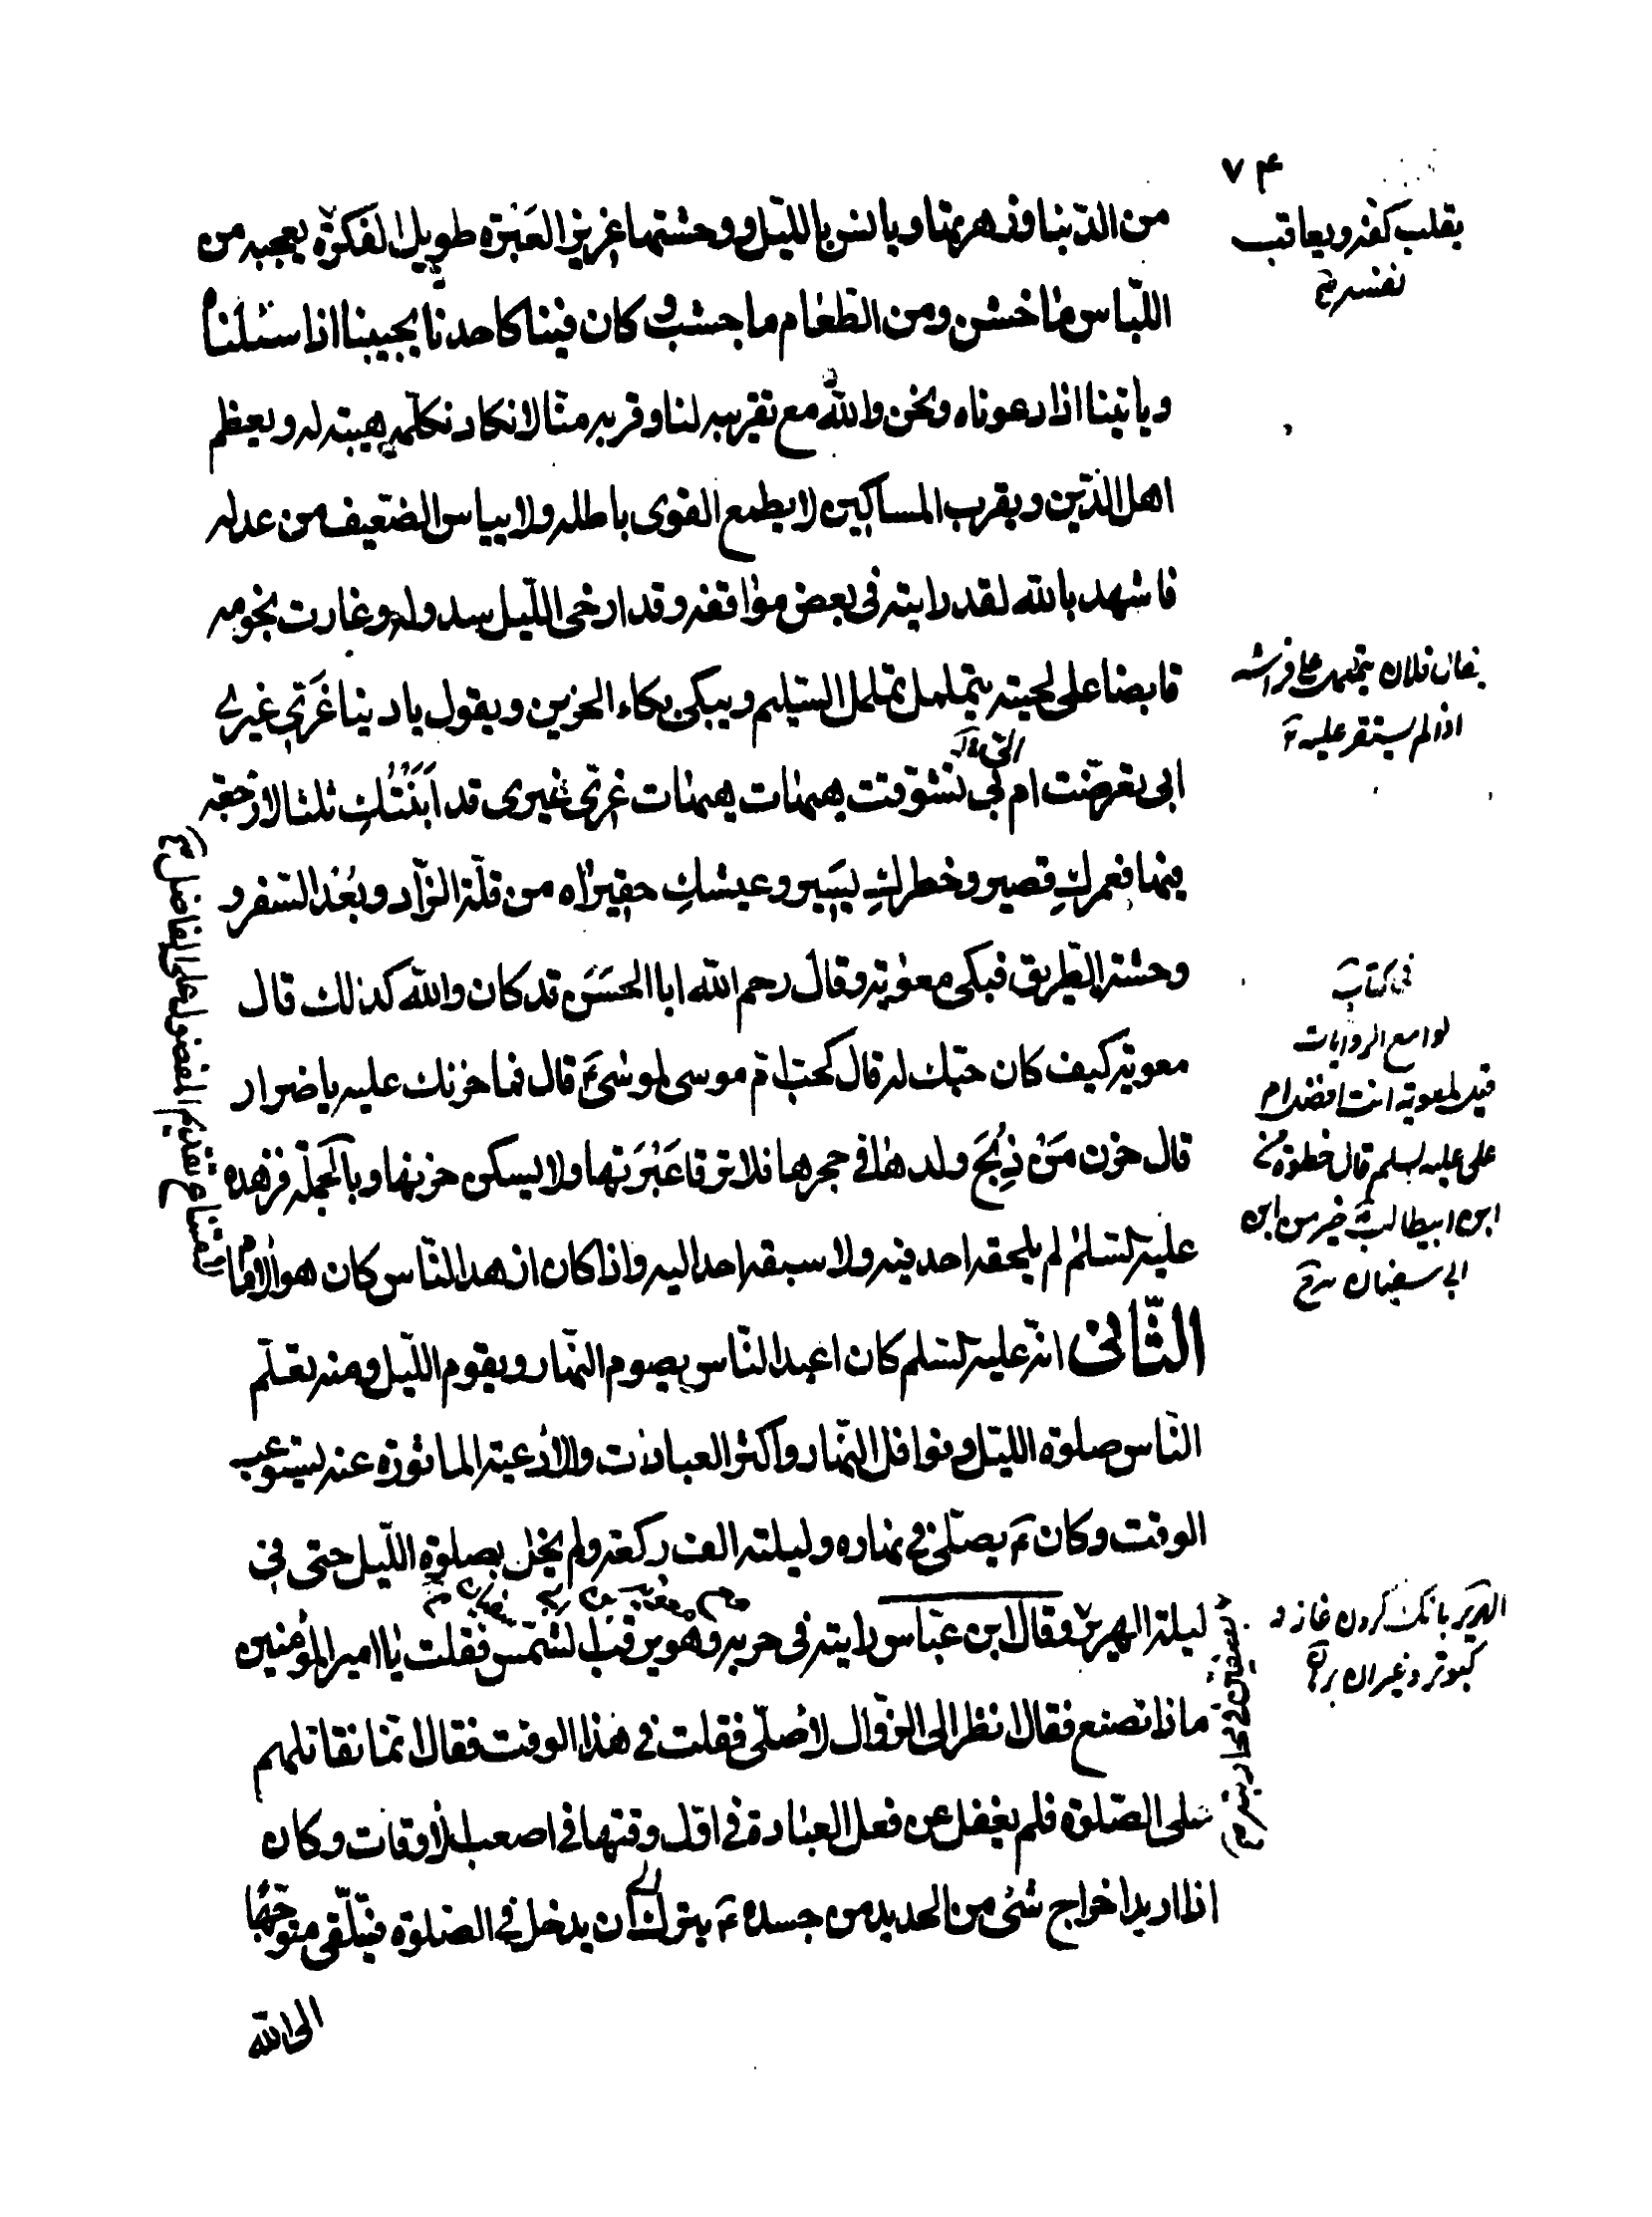 ٧٤
من الدنيا وزهرتها ويانس بالليل ووحشتها غريز العبرة طويل الفكرة يعجبه من
اللباس ما خشن ومن الطعام ما جشب وكان فينا كاحدنا يجيبنا اذا سئلناه
وياتينا اذا دعوناه ونحن والله مع تقريبه لنا وقربه منا لا نكاد نكلمه هيبة له ويعظم
اهل الدين ويقرب المساكين لا يطمع القوى باطله ولا ييأس الضعيف من عدله
فاشهد بالله لقد رايته فى بعض مواقفه وقد ارخى الليل سدوله وغارت نجومه
قابضا على لحيته يتململ تململ السليم ويبكى بكاء الحزين ويقول يا دينا غرّى غيرى
ابى تعرضت ام لى تشوقت هيهات هيهات غرّى غيرى قد ابنتكِ ثلثا لا رجعة
فيها فعمركِ قصير وخطركِ يسير وعيشكِ حقير اه من قلة الزاد وبُعد السفر و
وحشة الطريق فبكى معوية وقال رحم الله ابا الحسن قد كان والله كذلك قال
معوية كيف كان حبك له قال كحب ام موسى لموسى ع قال فما حزنك عليه يا ضرار
قال حزن من ذُبِحَ ولدها فى حجرها فلا ترقا عَبْرَتها ولا يسكن حزنها وبالجملة فزهده
عليه السلم لم يلحقه احد فيه ولا سبقه احد اليه واذا كان ازهد الناس كان هو الامام
الثانى انه عليه السلم كان اعبد الناس يصوم النهار ويقوم الليل ومنه تعلم
الناس صلوة الليل ونوافل النهار واكثر العبادات والادعية الماثورة عنه يستوعب
الوقت وكان ع يصلى فى نهاره وليلته الف ركعة ولم يخل بصلوة الليل حتى فى
ليلة الهرير وقال ابن عباس رايته فى حربه وهو يرقب الشمس فقلت يا امير المؤمنين
ماذا تصنع فقال انظر الى الزوال لاصلى فقلت فى هذا الوقت فقال انما نقاتلهم
على الصلوة فلم يغفل عن فعل العبادة فى اول وقتها فى اصعب الاوقات وكان
اذا اريد اخراج شئ من الحديد من جسده ع يترك الى ان يدخل فى الصلوة فيتلقى متوجها
الى الله
يقلب كفه ويعاقب
نفسه
يقال فلان يتململ على فراشه
اذا لم يستقر عليه
فى كتاب
لوامع الروايات
قيل لمعوية انت افضل ام
على عليه السلم قال خطوة من
ابن ابيطالب خير من ابن
ابى سفيان
الهرير بانك كردن
كبوتر وغيران
لامتناع تقديم المفضول على الفاضل